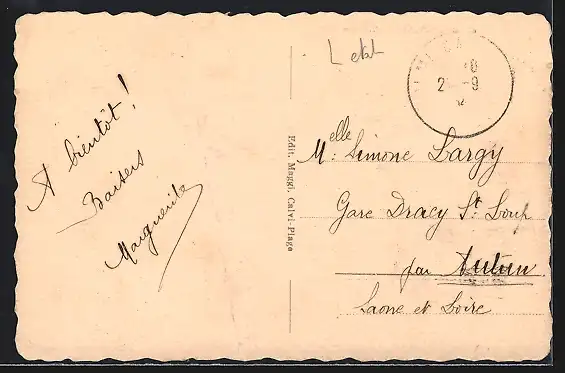 A bientôt !
Baisers
Marguerite
Edit. Maggi, Calvi-Plage
Melle Simone Largy
Gare Dracy St. Loup
par Autun
Saone et Loire